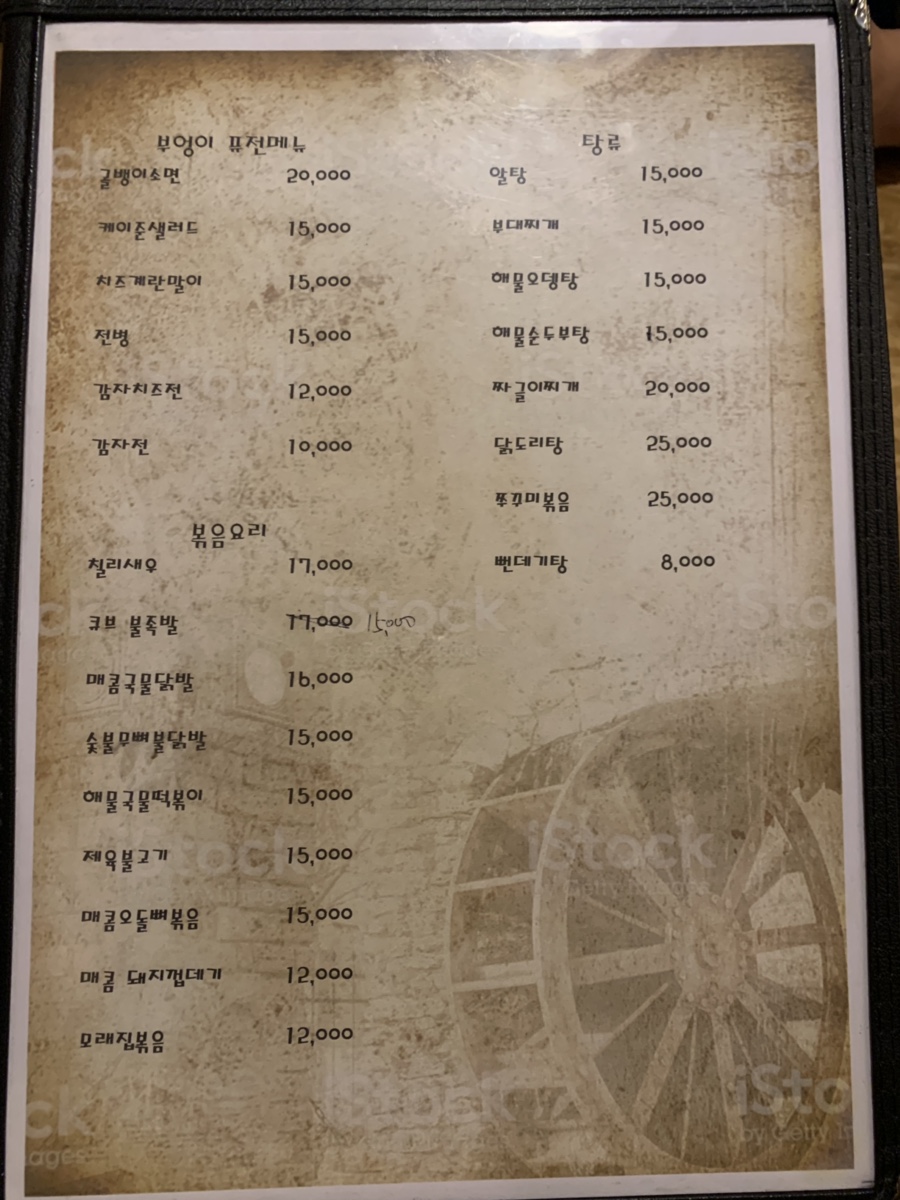 부엉이 퓨전메뉴
골뱅이소면 20,000
케이준샐러드 15,000
치즈계란말이 15,000
전병 15,000
감자치즈전 12,000
감자전 10,000
볶음요리
칠리새우 17,000
큐브 불족발 17,000 15,000
매콤국물닭발 16,000
숯불무뼈불닭발 15,000
해물국물떡볶이 15,000
제육불고기 15,000
매콤오돌뼈볶음 15,000
매콤 돼지껍데기 12,000
모래집볶음 12,000
탕류
알탕 15,000
부대찌개 15,000
해물오뎅탕 15,000
해물순두부탕 15,000
짜글이찌개 20,000
닭도리탕 25,000
쭈꾸미볶음 25,000
뻔데기탕 8,000
iStock
iStock
iStock
by Getty